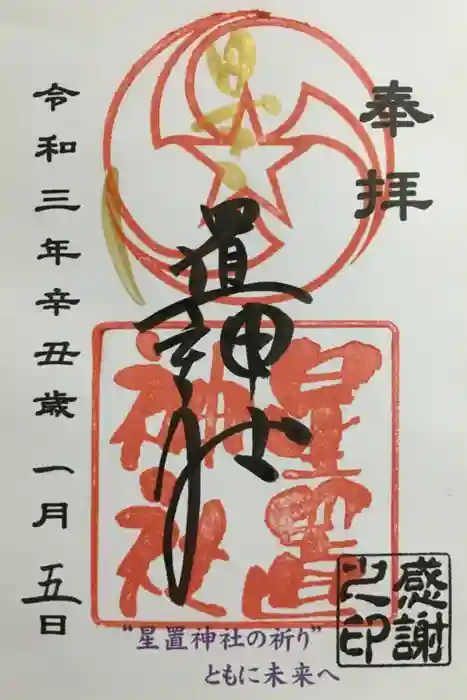 奉拝
星置神社
星置神社
感謝之印
令和三年辛丑歳 一月五日
"星置神社の祈り"
ともに未来へ